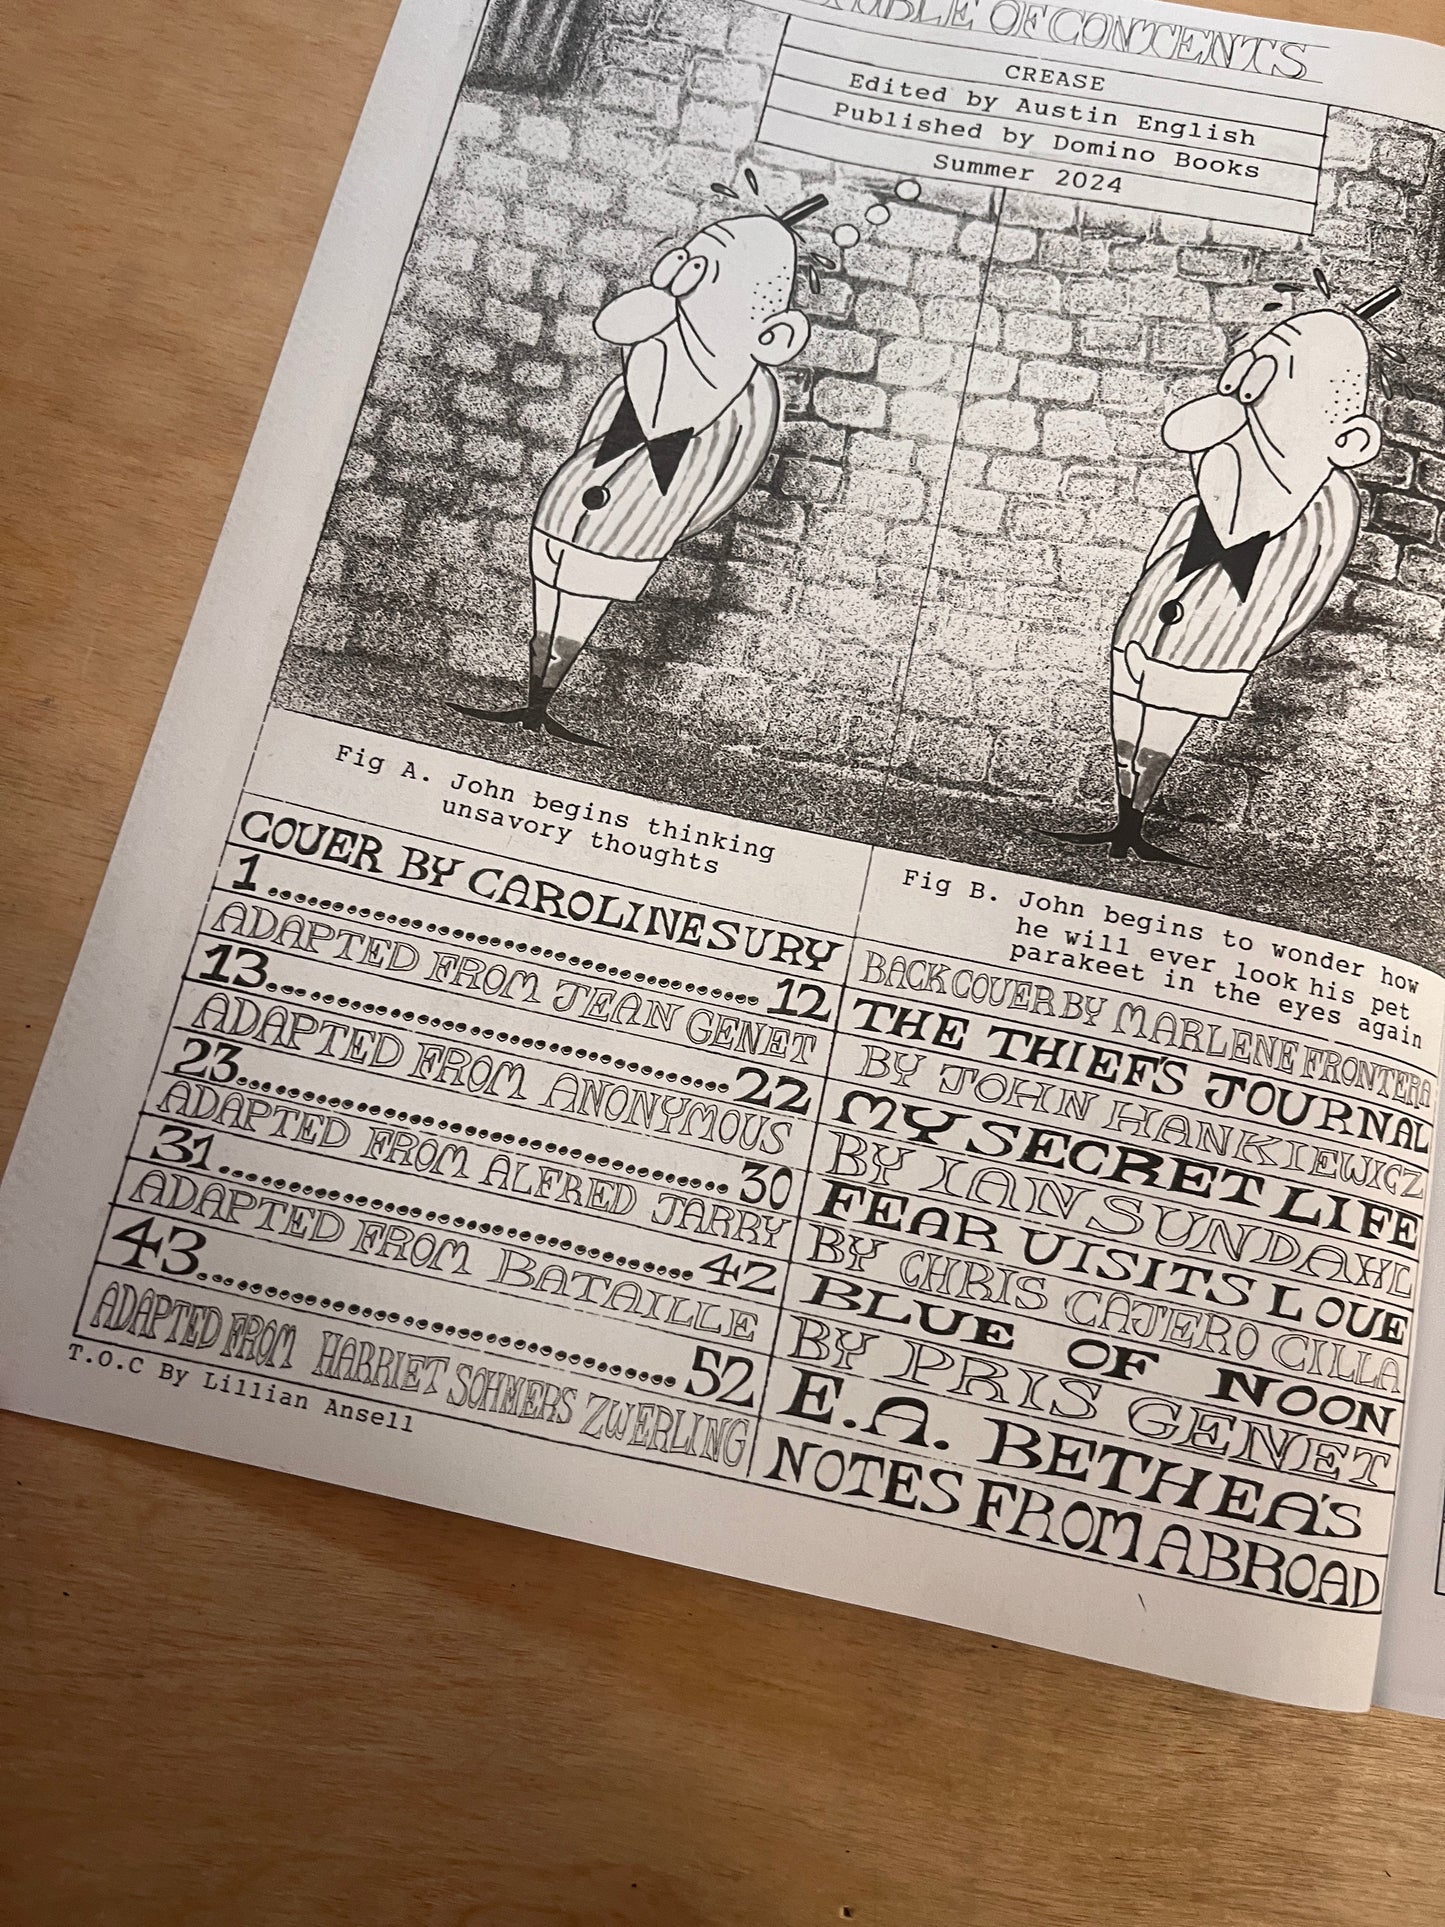 TABLE OF CONTENTS
CREASE
Edited by Austin English
Published by Domino Books
Summer 2024
Fig A. John begins thinking
unsavory thoughts
Fig B. John begins to wonder how
he will ever look his pet
parakeet in the eyes again
COVER BY CAROLINE SURY
BACK COVER BY MARLENE FRONTERA
1 12
THE THIEF'S JOURNAL
ADAPTED FROM JEAN GENET
BY JOHN HANKIEWICZ
13 22
MY SECRET LIFE
ADAPTED FROM ANONYMOUS
BY IAN SUNDAHL
23 30
FEAR VISITS LOVE
ADAPTED FROM ALFRED JARRY
BY CHRIS CAJERO CILLA
31 42
BLUE OF NOON
ADAPTED FROM BATAILLE
BY PRIS GENET
43 52
E.A. BETHEA'S
ADAPTED FROM HARRIET SOHMERS ZWERLING
NOTES FROM ABROAD
T.O.C By Lillian Ansell